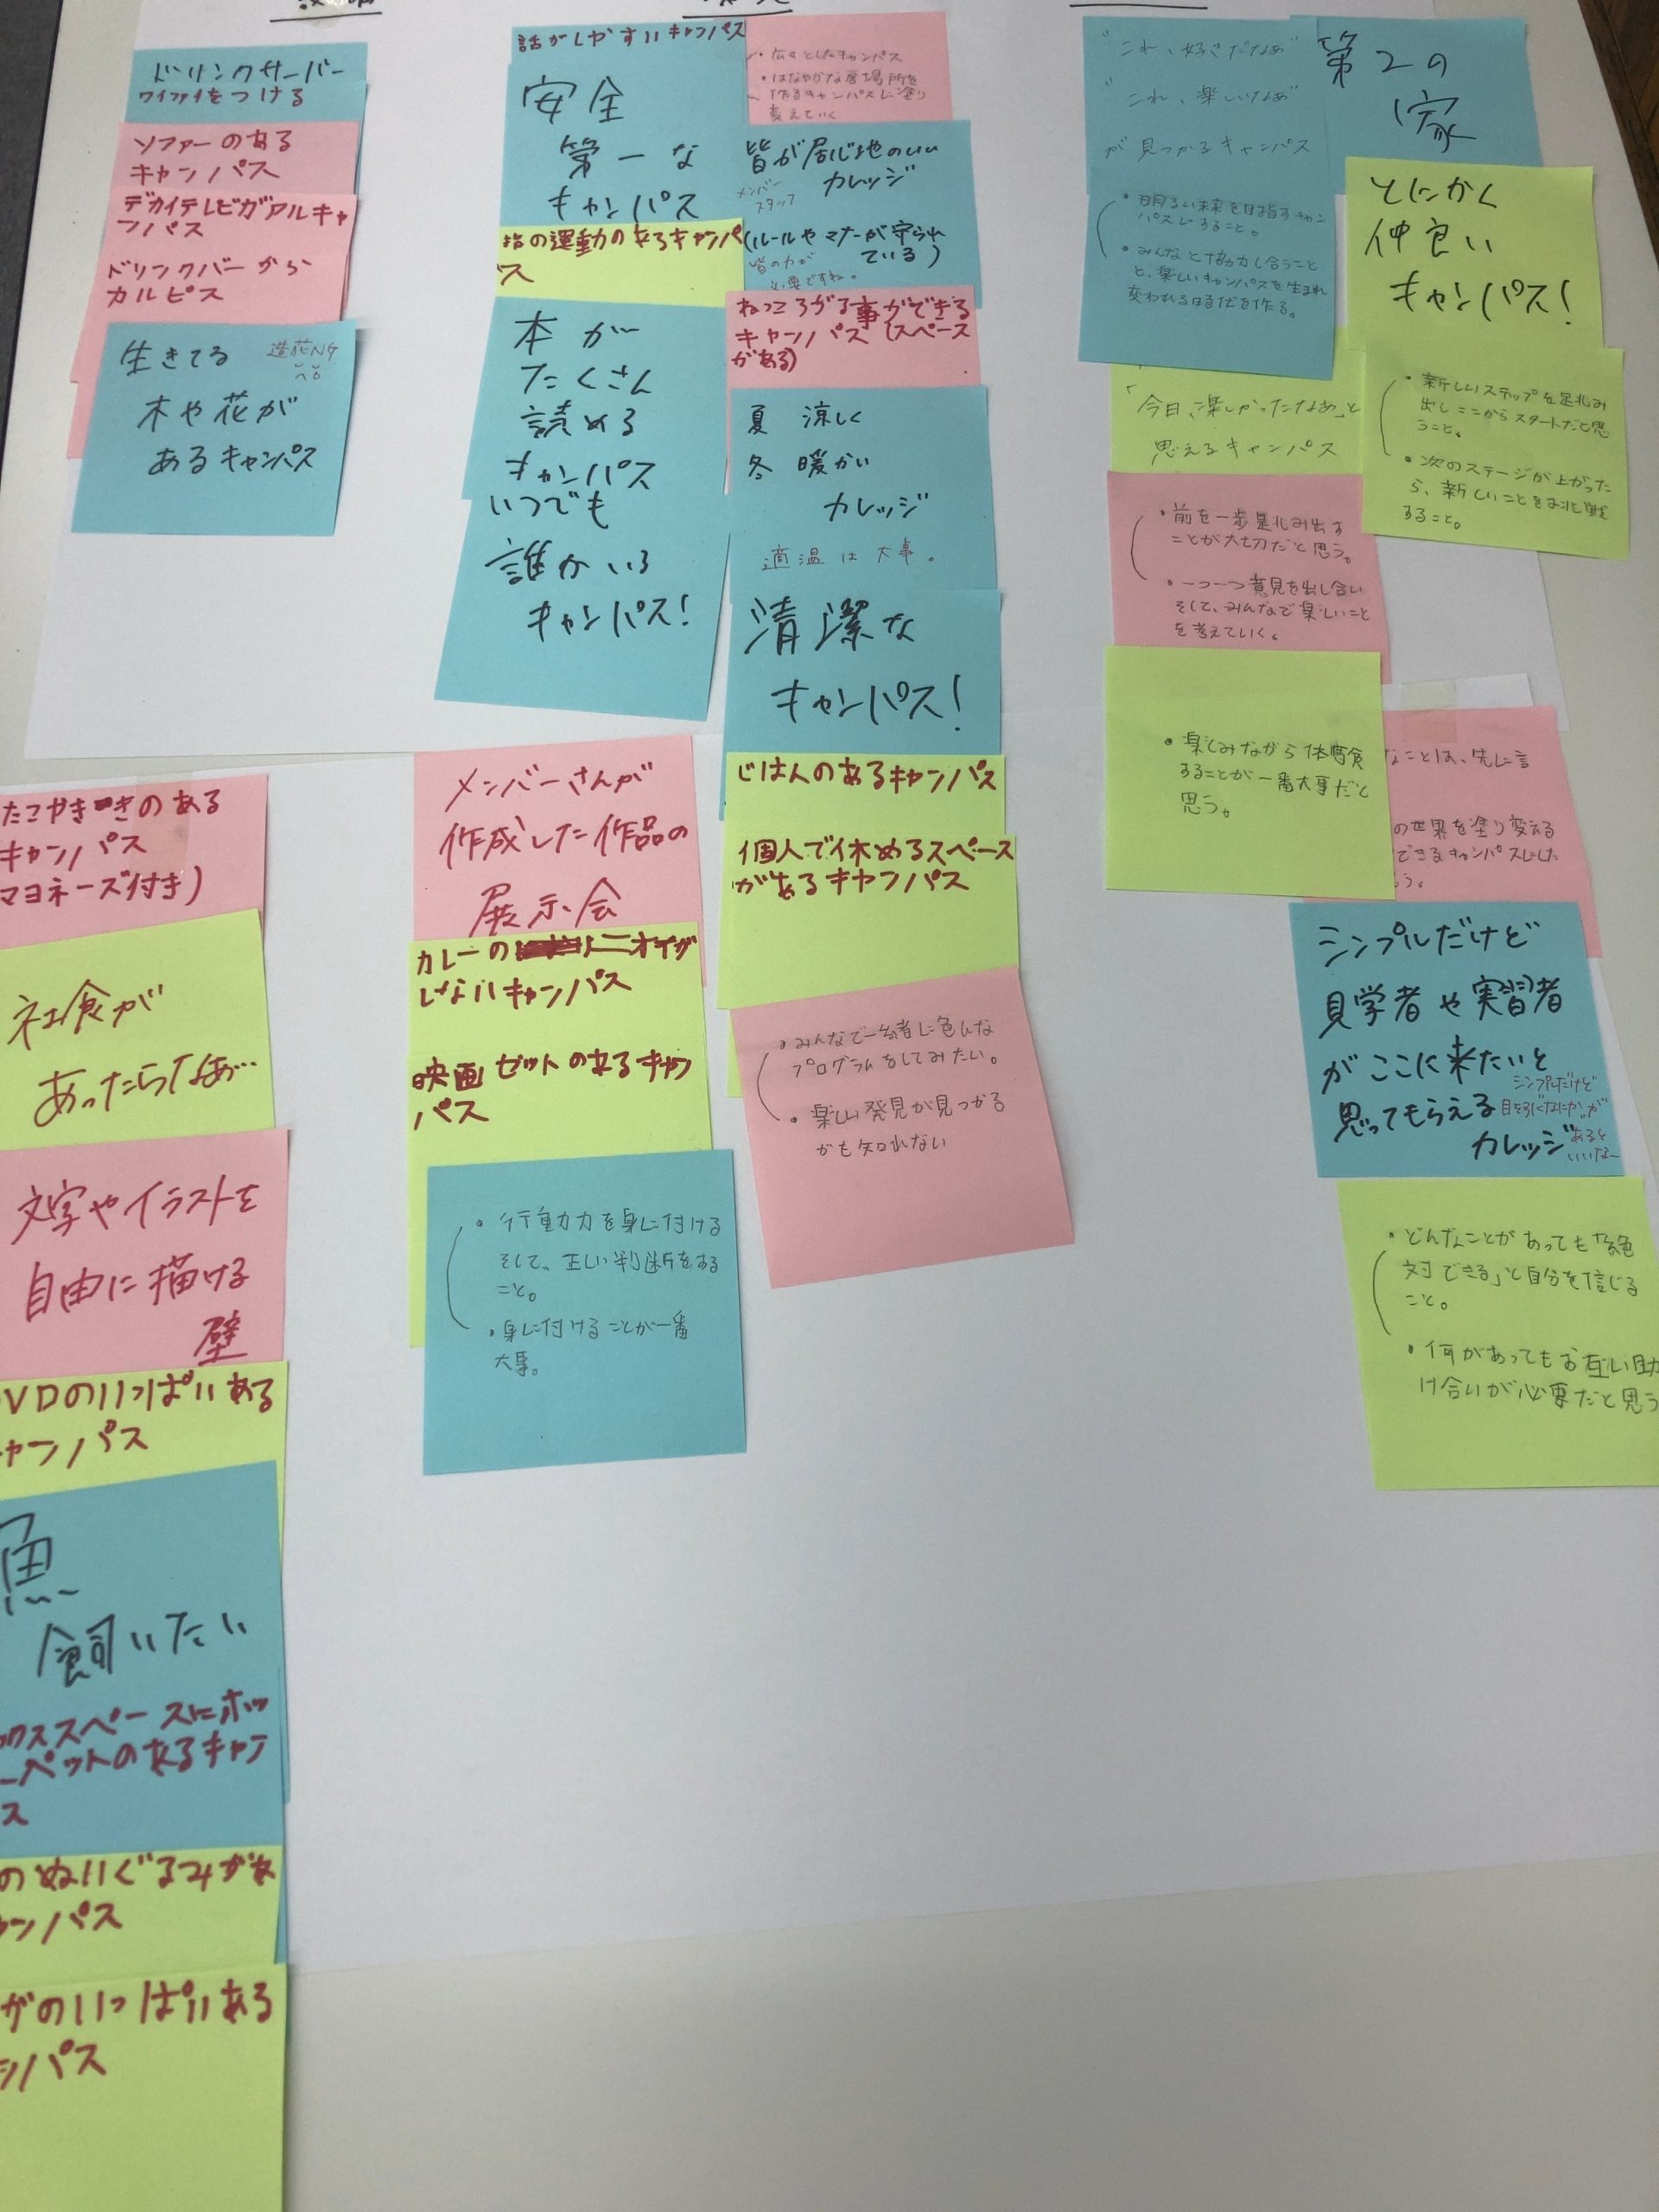 ドリンクサーバー
ワイファイをつける
ソファーのある
キャンパス
デカイテレビガアルキャ
ンパス
ドリンクバーから
カルピス
生きてる 造花NG
木や花が
あるキャンパス
たこやききのある
キャンパス
マヨネーズ付き)
社食が
あったらなぁ…
文字やイラストを
自由に描ける
壁
VDのいっぱいある
ャンパス
魚
飼いたい
ックススペースにホッ
ーペットのあるキャン
ス
のぬいぐるみがあ
ンパス
がのいっぱいある
ンパス
話がしやすいキャンパス
安全
第一な
キャンパス
指の運動のあるキャンパ
ス
本が
たくさん
読める
キャンパス
いつでも
誰かいる
キャンパス!
メンバーさんが
作成した作品の
展示会
カレーのニオイが
しないキャンパス
映画セットのあるキャン
パス
・行動力を身に付ける
そして、正しい判断をする
こと。
・身に付けることが一番
大事。
・広々としたキャンパス
・はなやかな居場所を
作るキャンパスに塗り
変えていく
皆が居心地のいい
メンバー
スタッフ
カレッジ
(ルールやマナーが守られ
ている)
皆の力が
必要ですね。
ねっころがる事ができる
キャンパス(スペース
がある)
夏 涼しく
冬 暖かい
カレッジ
適温は大事。
清潔な
キャンパス!
ごはんのあるキャンパス
個人で休めるスペース
があるキャンパス
・みんなで一緒に色んな
プログラムをしてみたい。
・楽しい発見が見つかる
かも知れない
"これ、好きだなぁ"
"これ、楽しいなぁ"
が見つかるキャンパス
・明るい未来を目指すキャン
パスにすること。
・みんなと協力し合うこと
と、楽しいキャンパスを生まれ
変われる時代を作る。
「今日、楽しかったなぁ」と
思えるキャンパス
・前を一歩踏み出す
ことが大切だと思う。
・一つ一つ意見を出し合い
そして、みんなで楽しいこと
を考えていく。
・楽しみながら体験
することが一番大事だと
思う。
第2の
家
とにかく
仲良い
キャンパス!
・新しいステップを踏み
出しここからスタートだと思
うこと。
・次のステージが上がった
ら、新しいことを挑戦
すること。
なことは、先に言
の世界を塗り変える
できるキャンパスにした
う。
シンプルだけど
見学者や実習者
がここに来たいと
思ってもらえる
カレッジ
シンプルだけど
目を引く"なにか"が
あると
いいなー
・どんなことがあっても「絶
対できる」と自分を信じる
こと。
・何があってもお互い助
け合いが必要だと思う